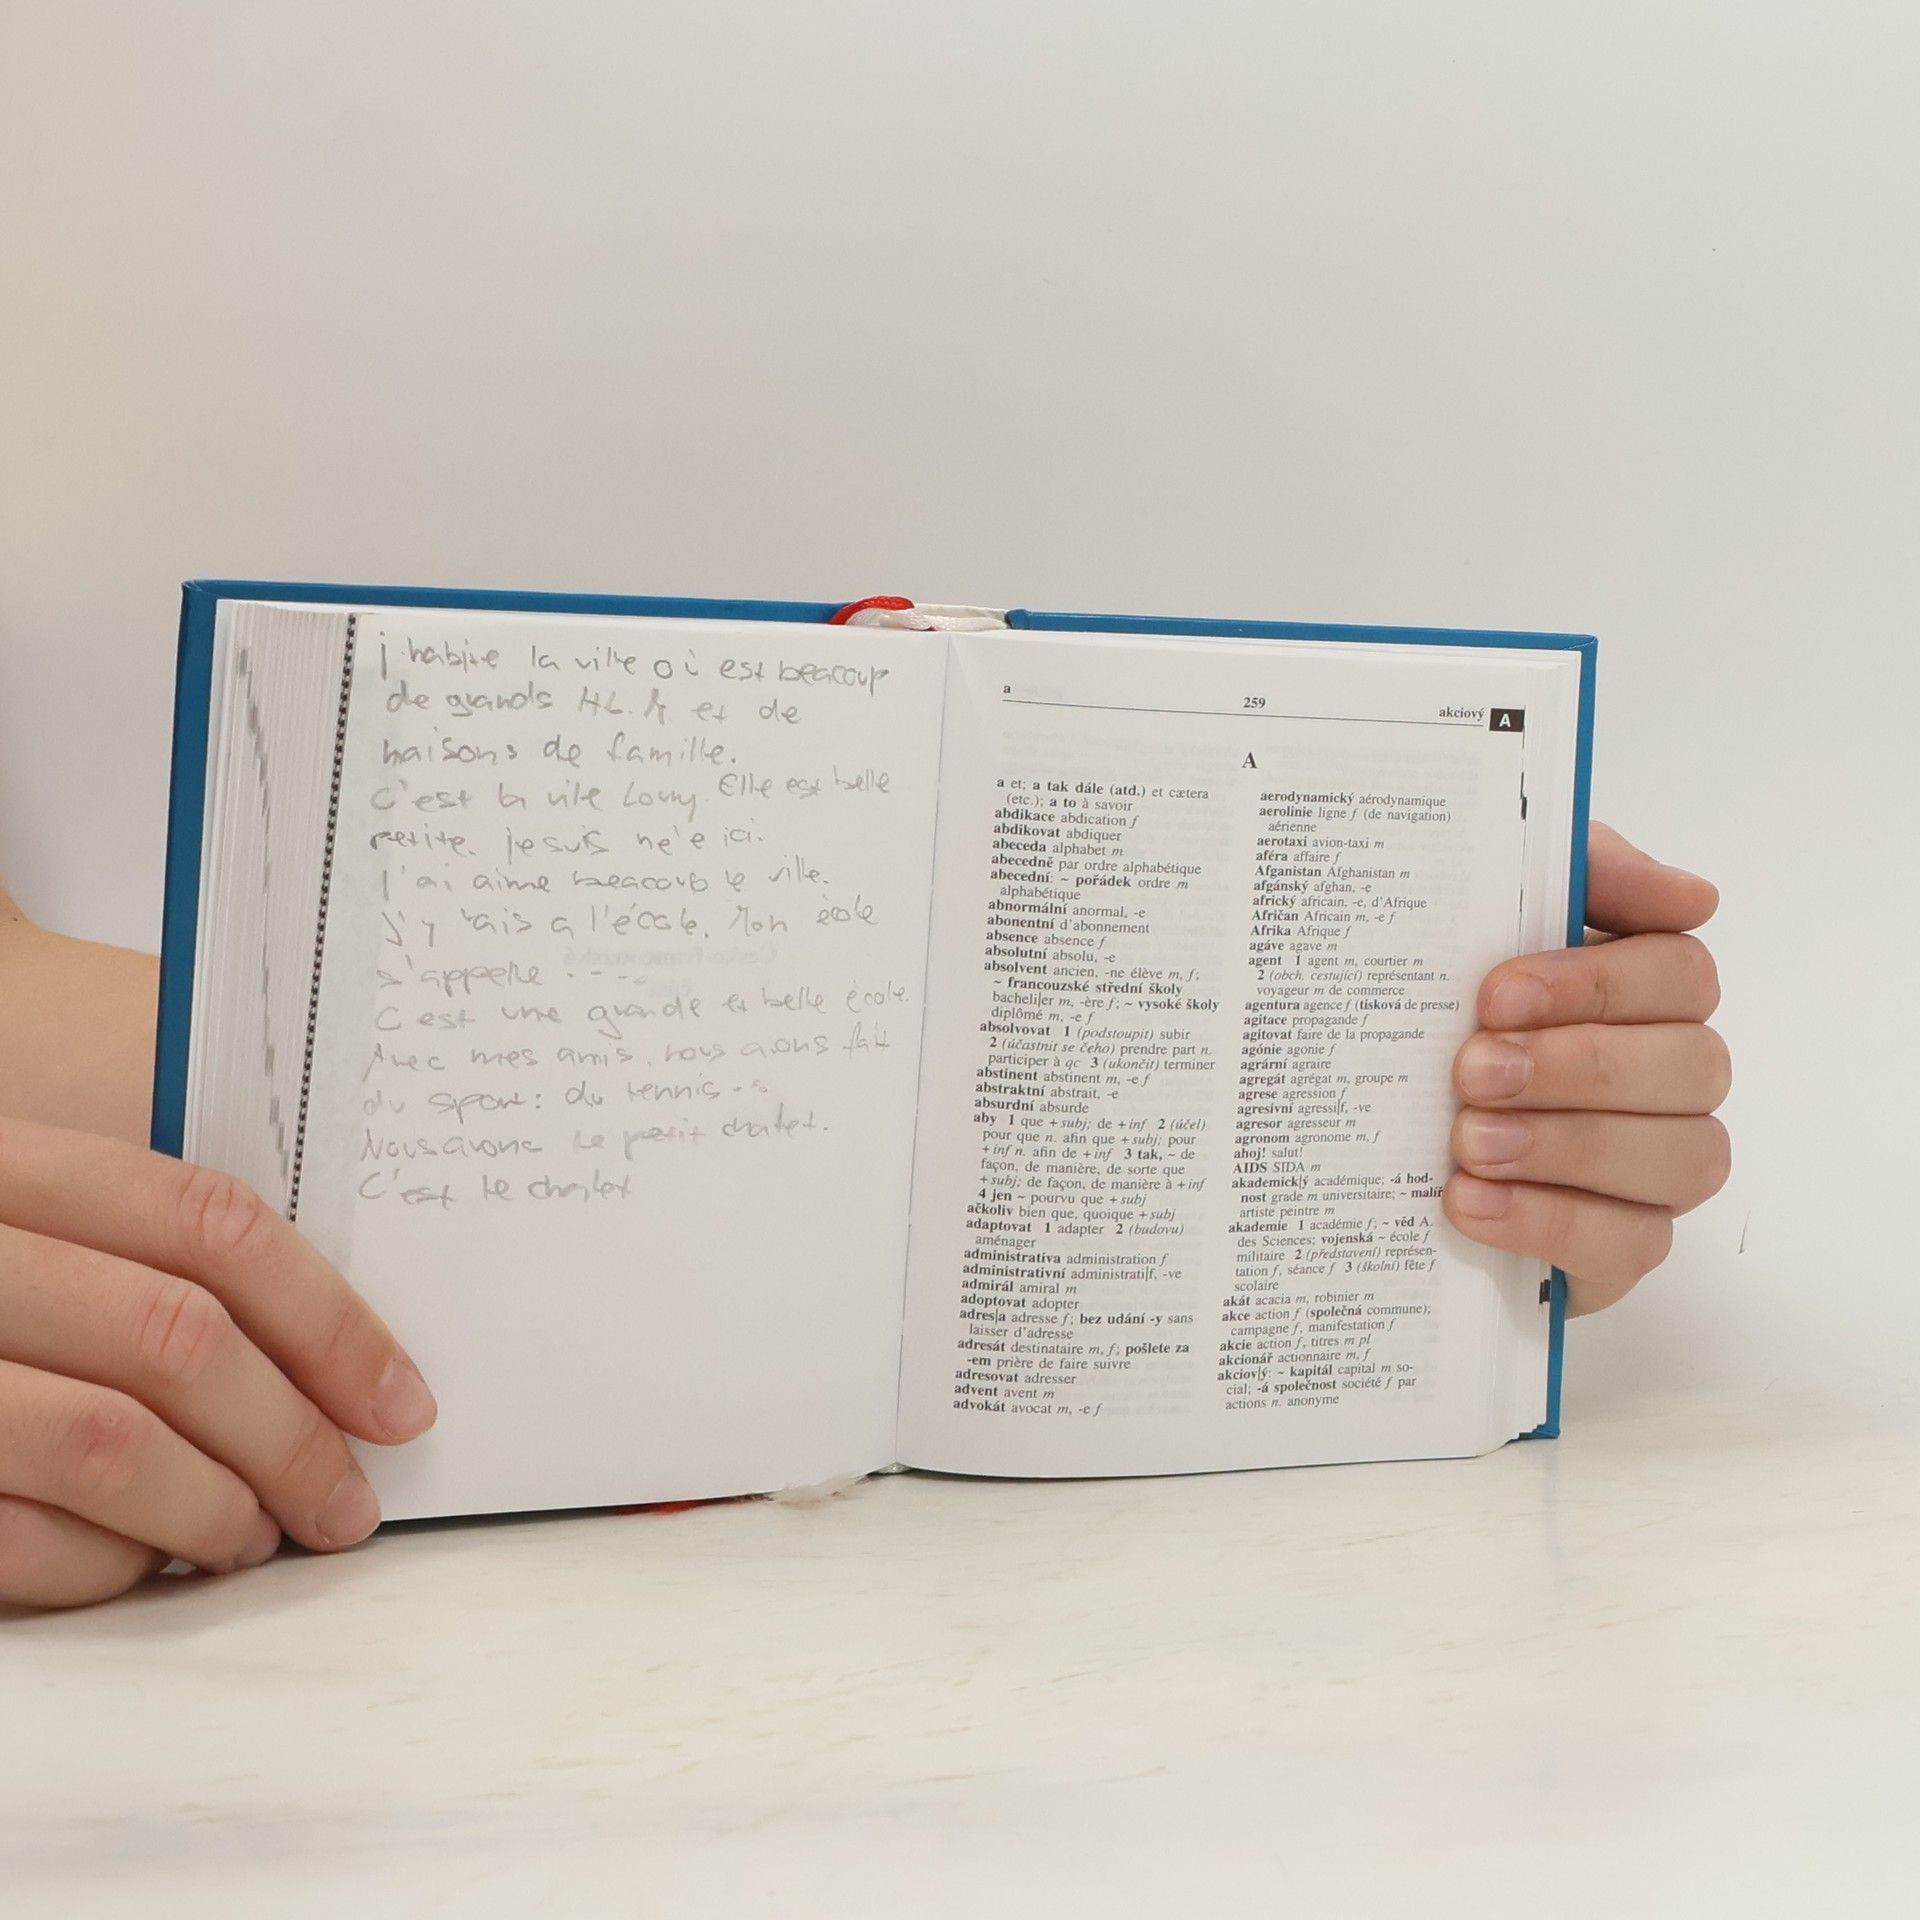 j'habite la ville où est beaucoup
de grands et de
maisons de famille.
C'est la ville Louny. Elle est belle
petite. je suis ne'e ici.
j'ai aime beaucoup le ville.
J'y vais a l'école. Mon école
s'appelle ----
C'est une grande et belle école.
Avec mes amis, nous avons fait
du sport: du tennis
Nous avons le petit chalet.
C'est le chalet
a
259
akciový
A
A
a et; a tak dále (atd.) et cætera
(etc.); a to à savoir
abdikace abdication f
abdikovat abdiquer
abeceda alphabet m
abecedně par ordre alphabétique
abecední: ~ pořádek ordre m
alphabétique
abnormální anormal, -e
abonentní d'abonnement
absence absence f
absolutní absolu, -e
absolvent ancien, -ne élève m, f;
~ francouzské střední školy
bacheli|er m, -ère f; ~ vysoké školy
diplômé m, -e f
absolvovat 1 (podstoupit) subir
2 (účastnit se čeho) prendre part n.
participer à qc 3 (ukončit) terminer
abstinent abstinent m, -e f
abstraktní abstrait, -e
absurdní absurde
aby 1 que + subj; de + inf 2 (účel)
pour que n. afin que + subj; pour
+ inf n. afin de + inf 3 tak, ~ de
façon, de manière, de sorte que
+ subj; de façon, de manière à + inf
4 jen ~ pourvu que + subj
ačkoliv bien que, quoique + subj
adaptovat 1 adapter 2 (budovu)
aménager
administrativa administration f
administrativní administrati|f, -ve
admirál amiral m
adoptovat adopter
adres|a adresse f; bez udání -y sans
laisser d'adresse
adresát destinataire m, f; pošlete za
-em prière de faire suivre
adresovat adresser
advent avent m
advokát avocat m, -e f
aerodynamický aérodynamique
aerolinie ligne f (de navigation)
aérienne
aerotaxi avion-taxi m
aféra affaire f
Afganistan Afghanistan m
afgánský afghan, -e
africký africain, -e, d'Afrique
Afričan Africain m, -e f
Afrika Afrique f
agáve agave m
agent 1 agent m, courtier m
2 (obch. cestující) représentant n.
voyageur m de commerce
agentura agence f (tisková de presse)
agitace propagande f
agitovat faire de la propagande
agónie agonie f
agrární agraire
agregát agrégat m, groupe m
agrese agression f
agresivní agressi|f, -ve
agresor agresseur m
agronom agronome m, f
ahoj! salut!
AIDS SIDA m
akademick|ý académique; -á hod-
nost grade m universitaire; ~ malíř
artiste peintre m
akademie 1 académie f; ~ věd A.
des Sciences; vojenská ~ école f
militaire 2 (představení) représen-
tation f, séance f 3 (školní) fête f
scolaire
akát acacia m, robinier m
akce action f (společná commune);
campagne f, manifestation f
akcie action f, titres m pl
akcionář actionnaire m, f
akciov|ý: ~ kapitál capital m so-
cial; -á společnost société f par
actions n. anonyme